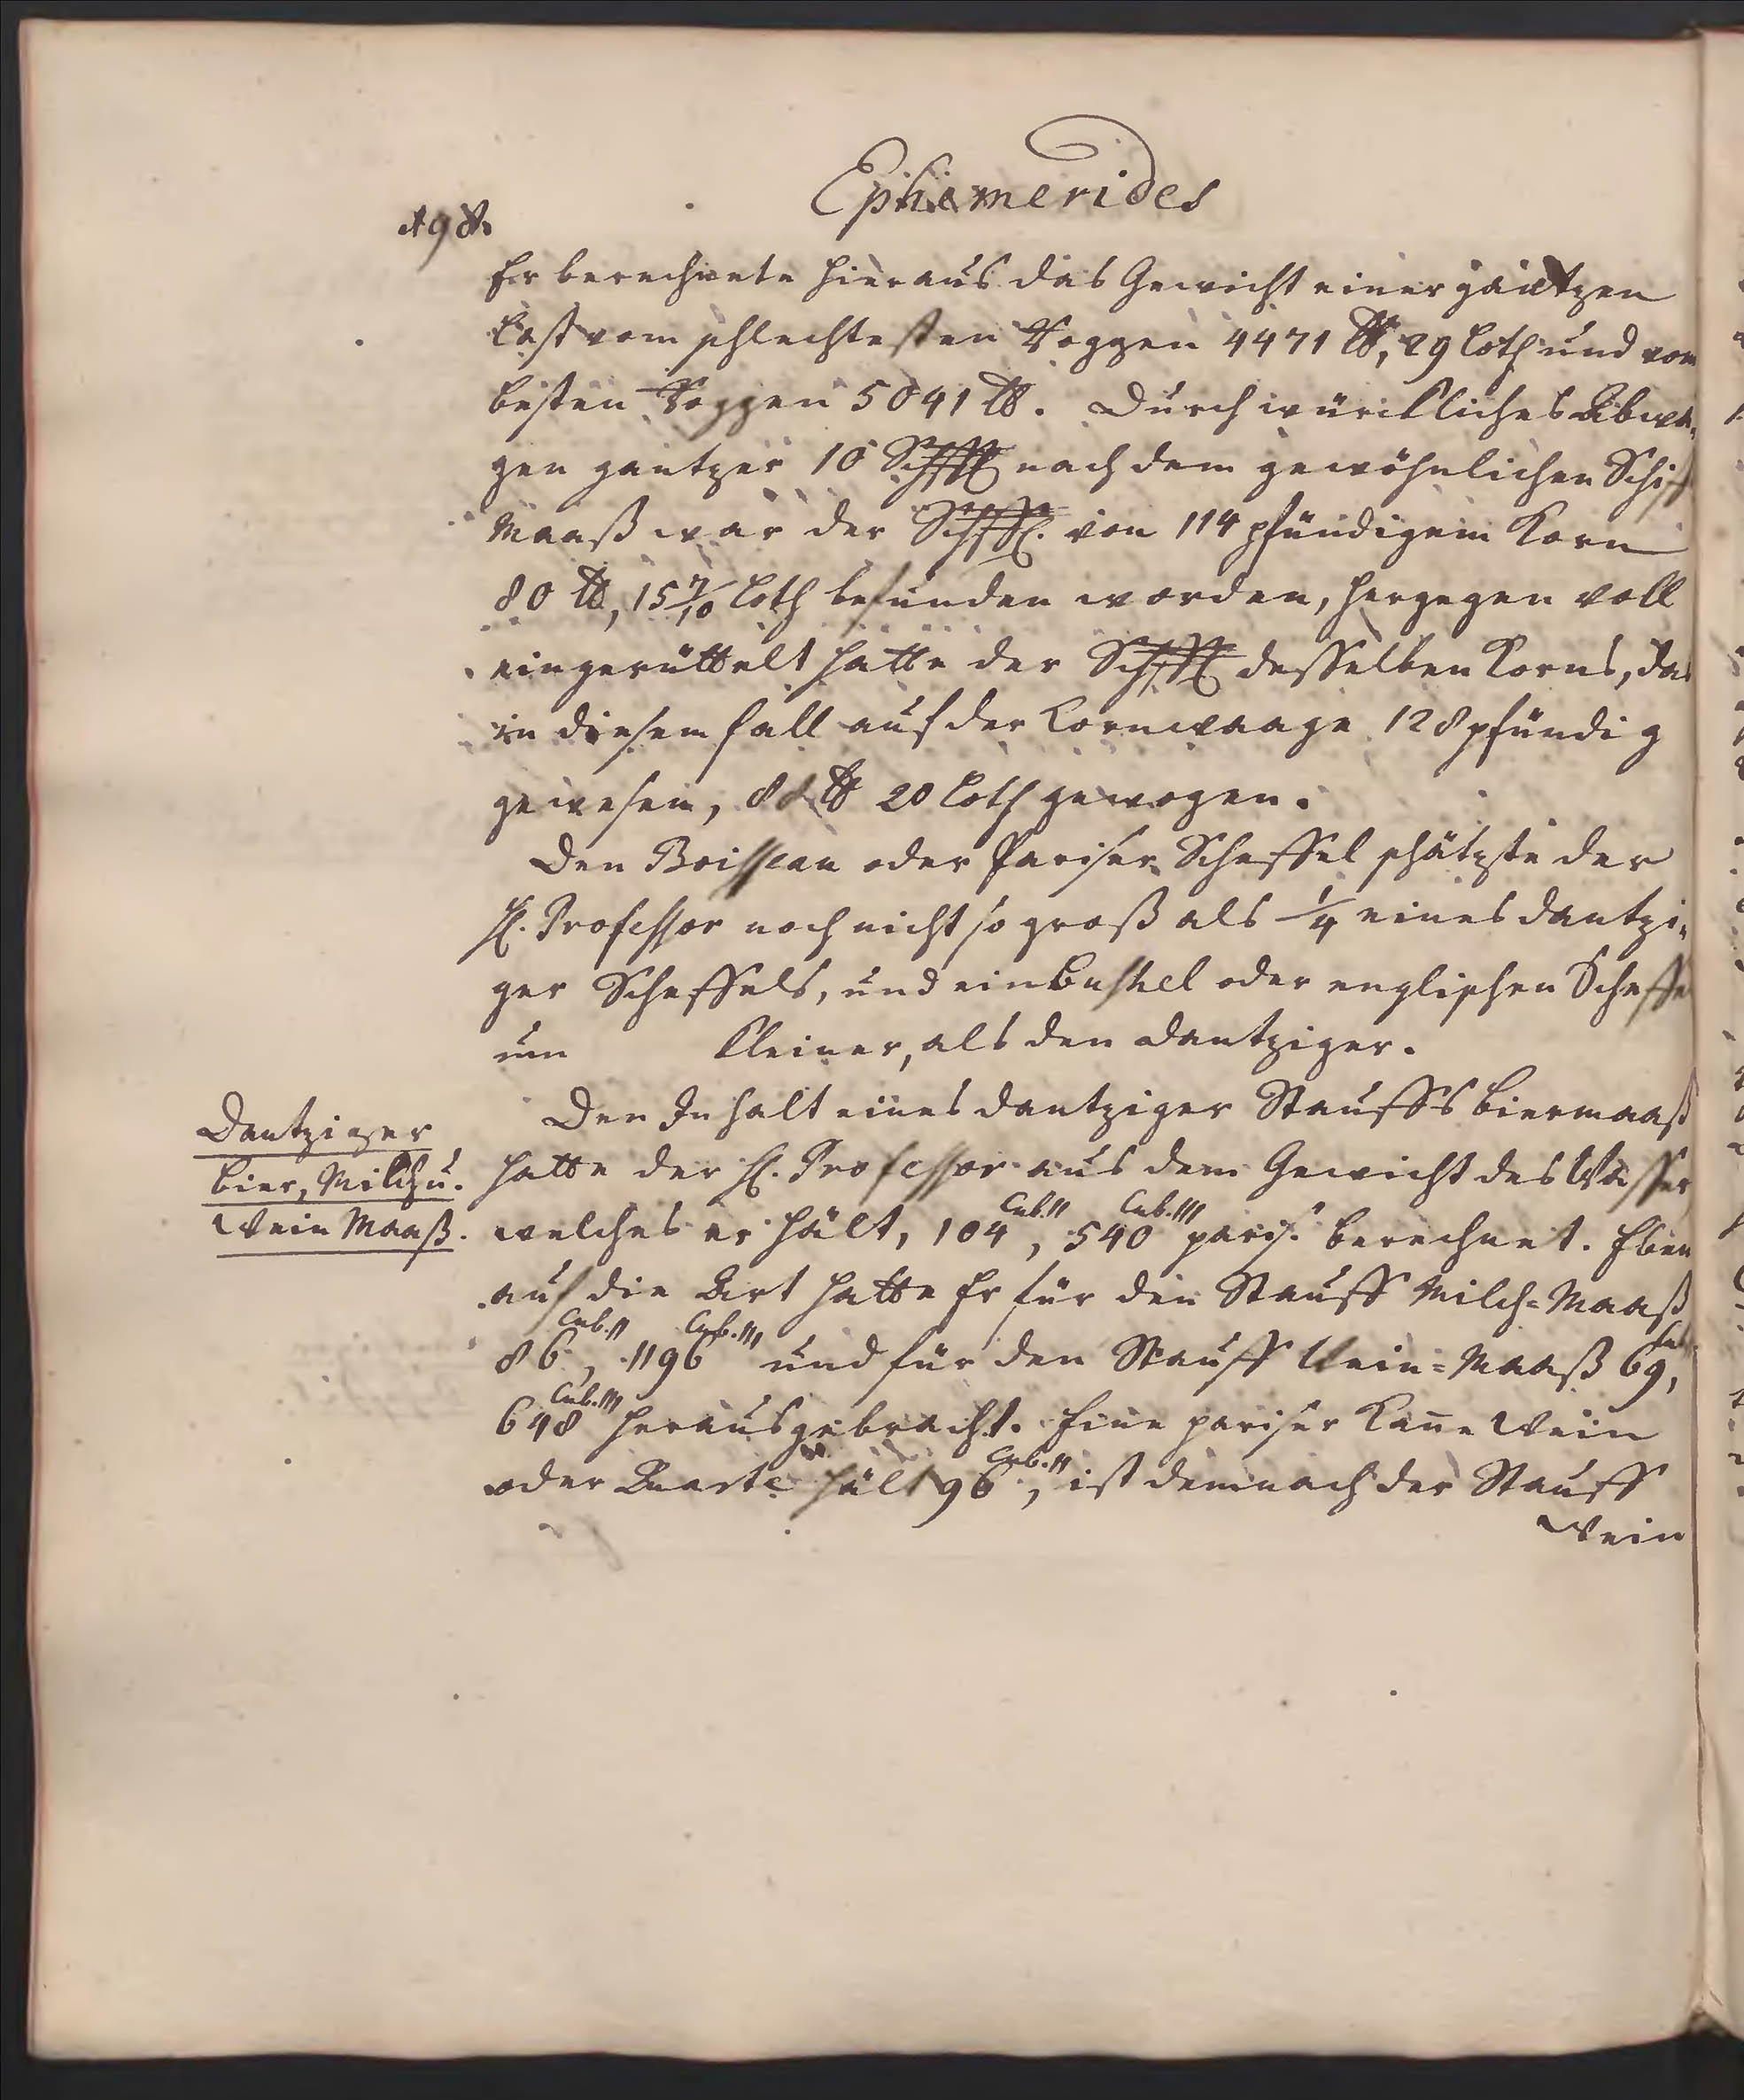 Ephemerides
198.
Er berechnete hieraus das Gewicht einer gantzen
Last vom schlechtesten Roggen 4471 ℔, 29 Loth und vom
besten Roggen 5041 ℔. Durch würckliches Abwä-
gen gantzer 10 Schffl nach dem gewöhnlichen Schiff
Maaß war der Schffl. von 114 pfündigem Korn
80 ℔, 15 7/10 Loth befunden worden, hergegen voll
eingerüttelt hatte der Schffl desselben Korns, das
in diesem fall auf der Kornwaage 128 pfündig
gewesen, 88 ℔ 20 Loth gewogen.
Den Boisseau oder Pariser Scheffel schätzte der
H. Professor noch nicht so groß als 1/4 eines dantzi-
ger Scheffels, und ein Bushel oder englischen Scheffel
um kleiner, als den dantziger.
Dantziger
Bier, Milch u.
Wein Maaß.
Den Inhalt eines dantziger Stauffs Biermaaß
hatte der H. Professor aus dem Gewicht des Wasser
welches er hält, 104 Cub.'', 540 Cub.''' paris. berechnet. Eben
auf die Art hatte Er für den Stauff Milch-Maaß
86 Cub.'', 1196 Cub.''' und für den Stauff Wein-Maaß 69 Cub.,
648 Cub.''' herausgebracht. Eine pariser Kan̄e Wein
oder Quarte hält 96 Cub.'', ist demnach der Stauff
Wein